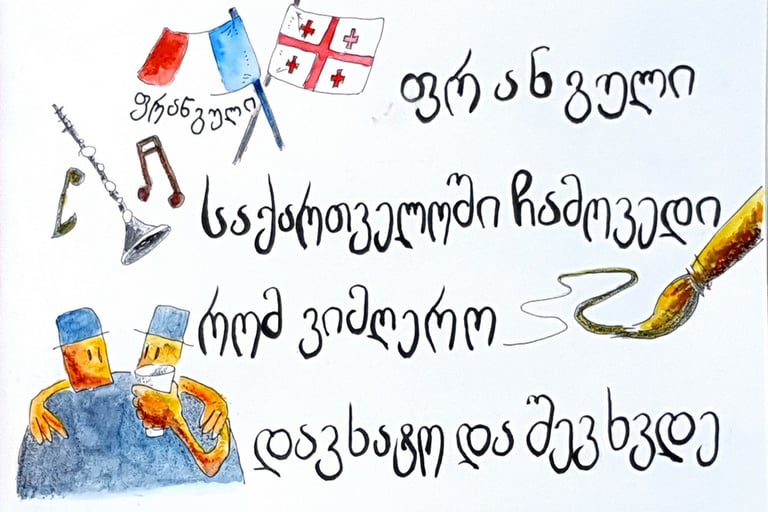 ფრანგული
ფრანგული
საქართველოში ჩამოვედი
რომ ვიმღერო
დავხატო და შევხვდე